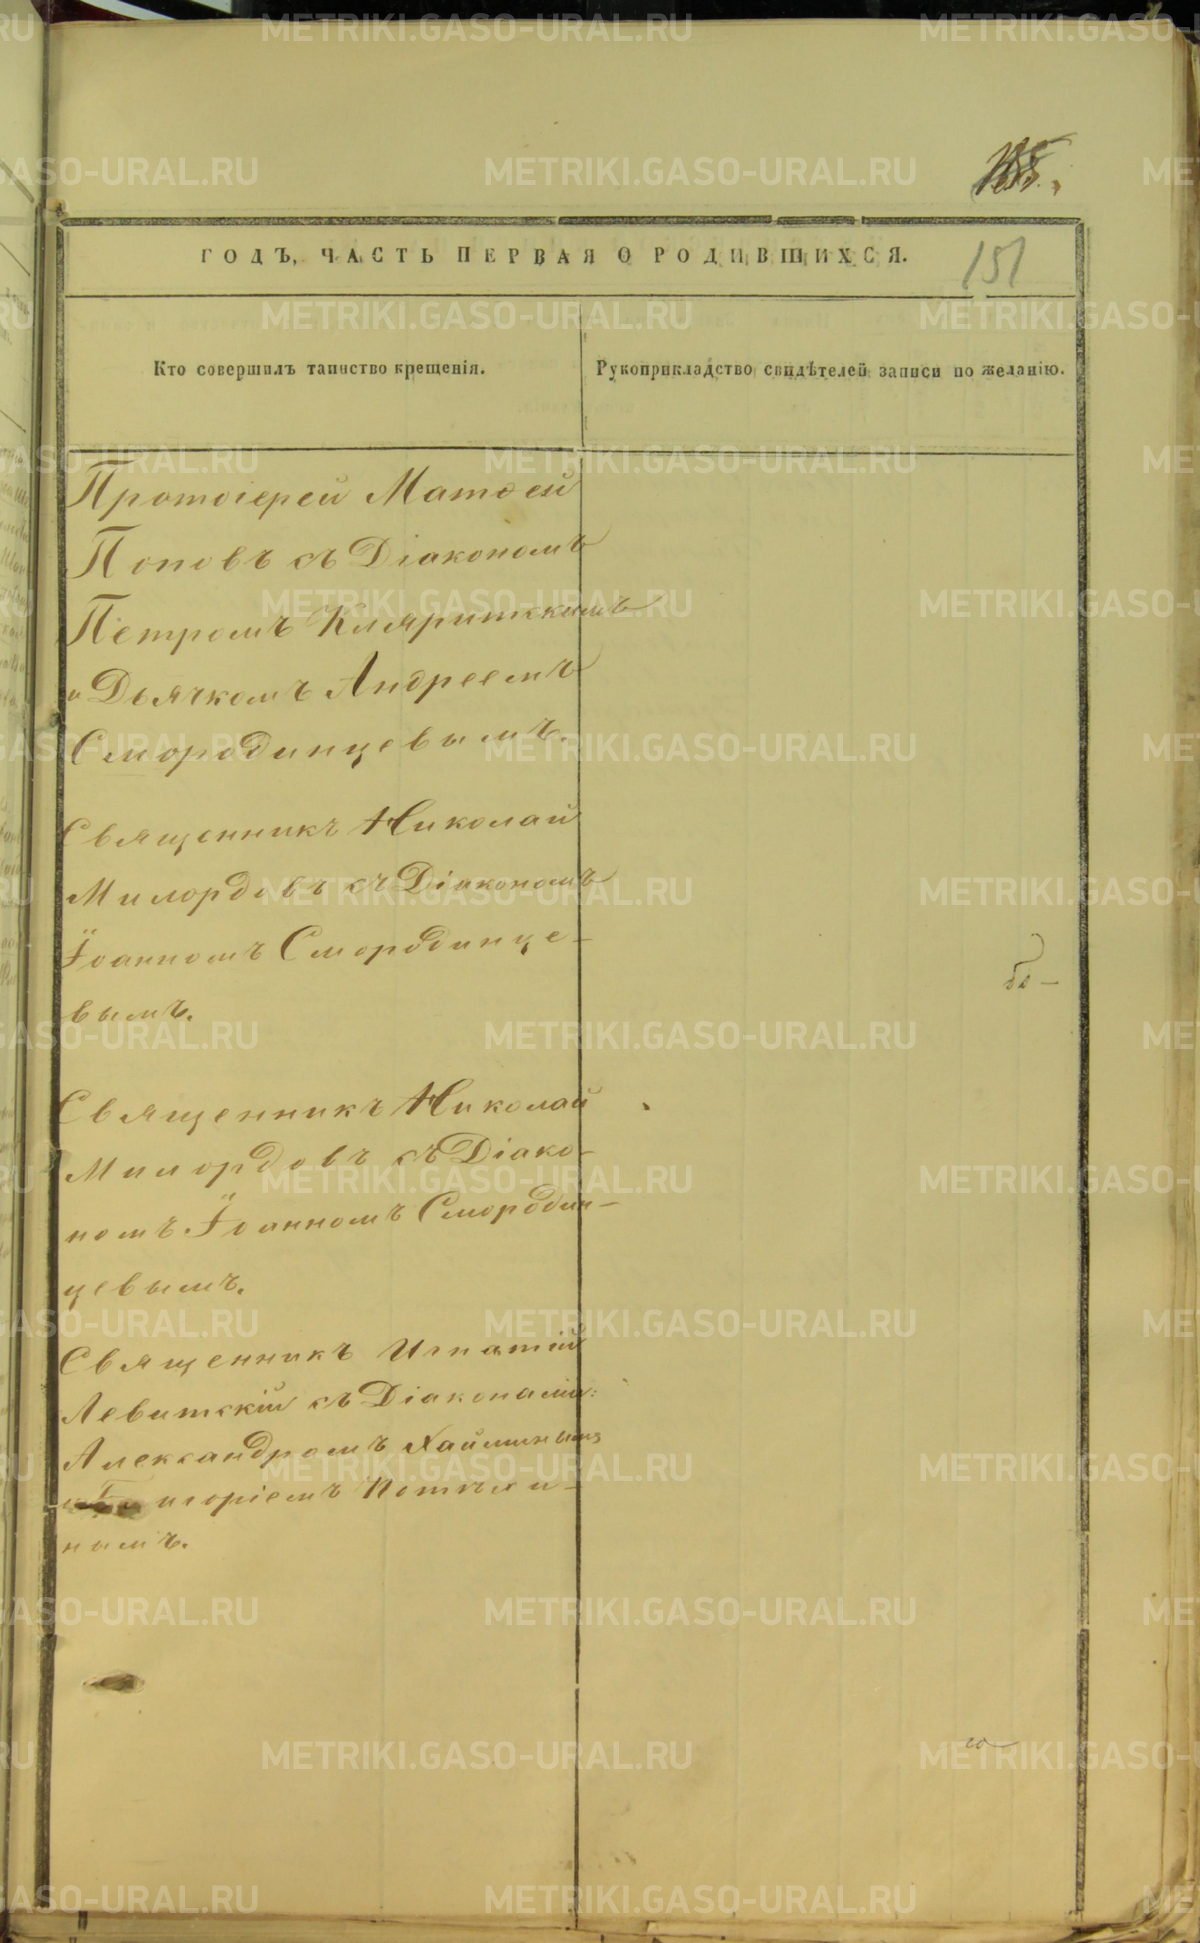 ГОДЪ, ЧАСТЬ ПЕРВАЯ О РОДИВШИХСЯ.
151
Кто совершилъ таинство крещенія.
Рукоприкладство свидѣтелей записи по желанію.
Протоіерей Матѳей
Поповъ съ Діакономъ
Петромъ Кляритскимъ
и Дьячкомъ Андреемъ
Смородинцевымъ.
Священникъ Николай
Милордовъ съ Діакономъ
Іоанномъ Смородинце-
вымъ.
Священникъ Николай
Милордовъ съ Діако-
номъ Іоанномъ Смородин-
цевымъ.
Священникъ Игнатій
Левитскій съ Діаконами:
Александромъ Хайминымъ
и Григоріемъ Потѣхи-
нымъ.
METRIKI.GASO-URAL.RU